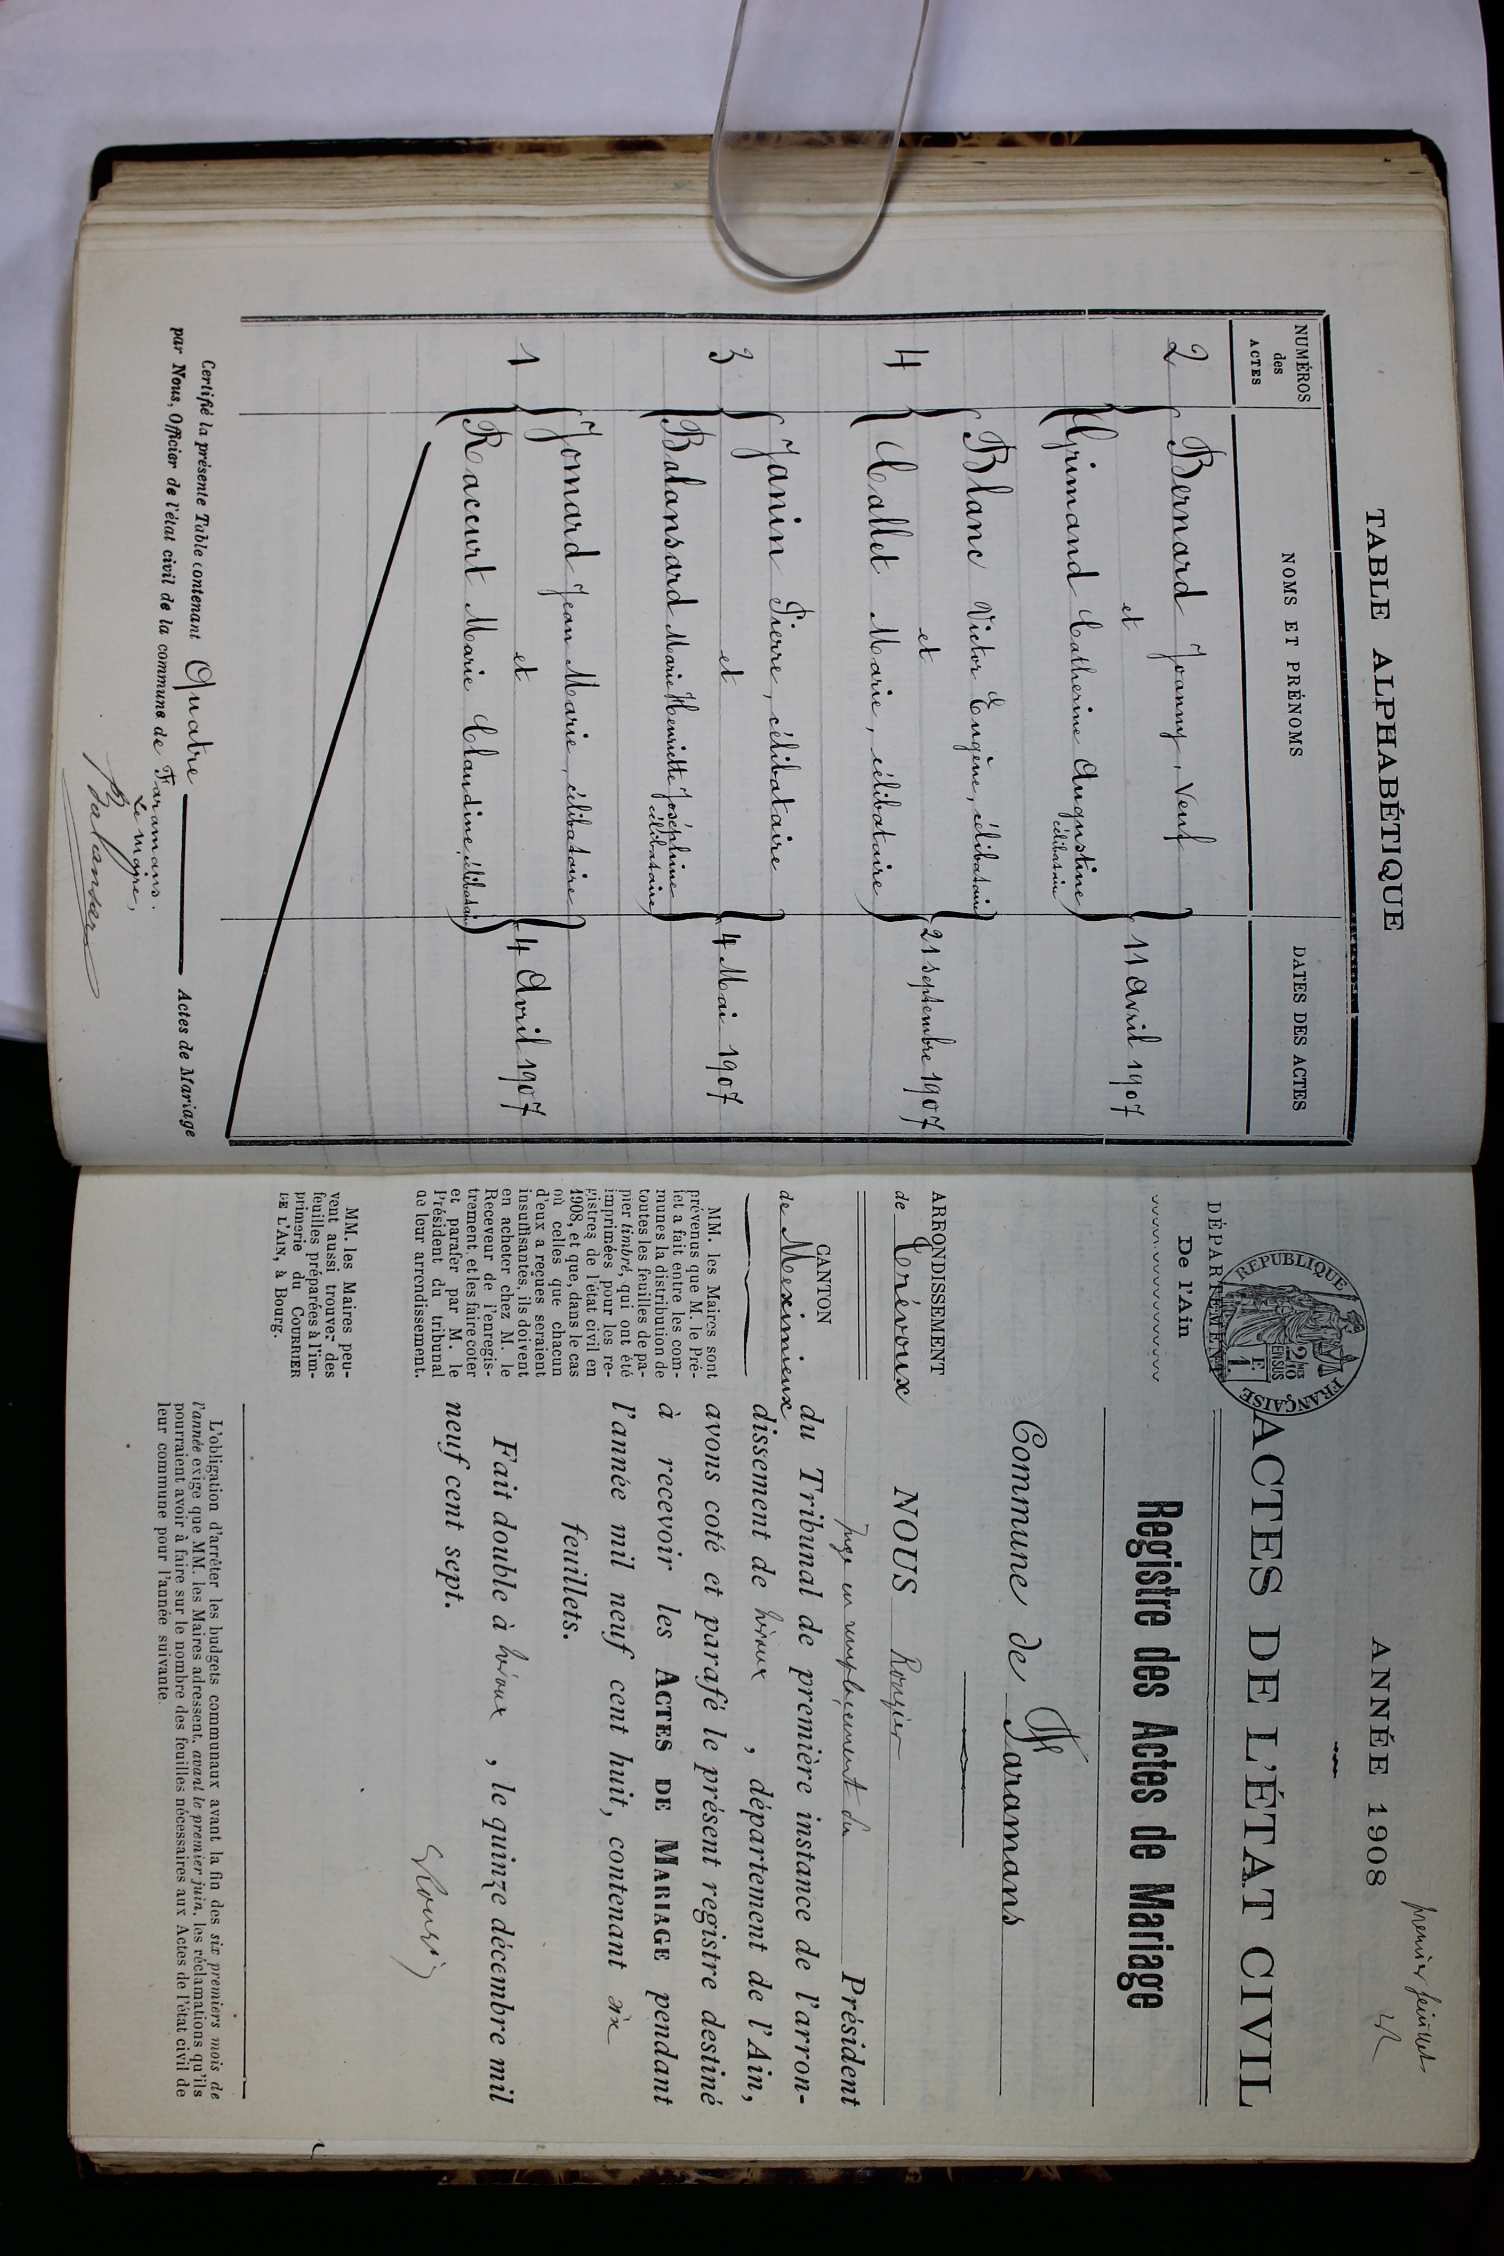 TABLE ALPHABÉTIQUE
NUMÉROS des ACTES
NOMS ET PRÉNOMS
DATES DES ACTES
2 Bernard Joanny, Veuf
et 11 Avril 1907
Grimand Catherine Augustine
célibataire
Blanc Victor Eugène, célibataire
4 et 21 septembre 1907
Callet Marie, célibataire
Janin Pierre, célibataire
3 et 4 Mai 1907
Balansard Marie Henriette Joséphine
célibataire
Jomard Jean Marie, célibataire
1 et 4 Avril 1907
Raccurt Marie Claudine célibataire
Certifié la présente Table contenant Quatre Actes de Mariage
par Nous, Officier de l'état civil de la commune de Faramans.
Le Maire,
Balansard
premier feuillet
ANNÉE 1908
REPUBLIQUE FRANÇAISE
ACTES DE L'ÉTAT CIVIL
DÉPARTEMENT
De l'Ain
Registre des Actes de Mariage
Commune de Faramans
ARRONDISSEMENT
de Trévoux
CANTON
de Meximieux
MM. les Maires sont
prévenus que M. le Pré-
fet a fait entre les com-
munes la distribution de
toutes les feuilles de pa-
pier timbré, qui ont été
imprimées pour les re-
gistres de l'état civil en
1908, et que, dans le cas
où celles que chacun
d'eux a reçues seraient
insuffisantes, ils doivent
en acheter chez M. le
Receveur de l'enregis-
trement, et les faire coter
et parafer par M. le
Président du tribunal
de leur arrondissement.
MM. les Maires peu-
vent aussi trouver des
feuilles préparées à l'im-
primerie du COURRIER
DE L'AIN, à Bourg.
NOUS Rougier
juge en remplacement du Président
du Tribunal de première instance de l'arron-
dissement de Trévoux, département de l'Ain,
avons coté et parafé le présent registre destiné
à recevoir les ACTES DE MARIAGE pendant
l'année mil neuf cent huit, contenant six
feuillets.
Fait double à Trévoux, le quinze décembre mil
neuf cent sept.
L'obligation d'arrêter les budgets communaux avant la fin des six premiers mois de
l'année exige que MM. les Maires adressent, avant le premier juin, les réclamations qu'ils
pourraient avoir à faire sur le nombre des feuilles nécessaires aux Actes de l'état civil de
leur commune pour l'année suivante.